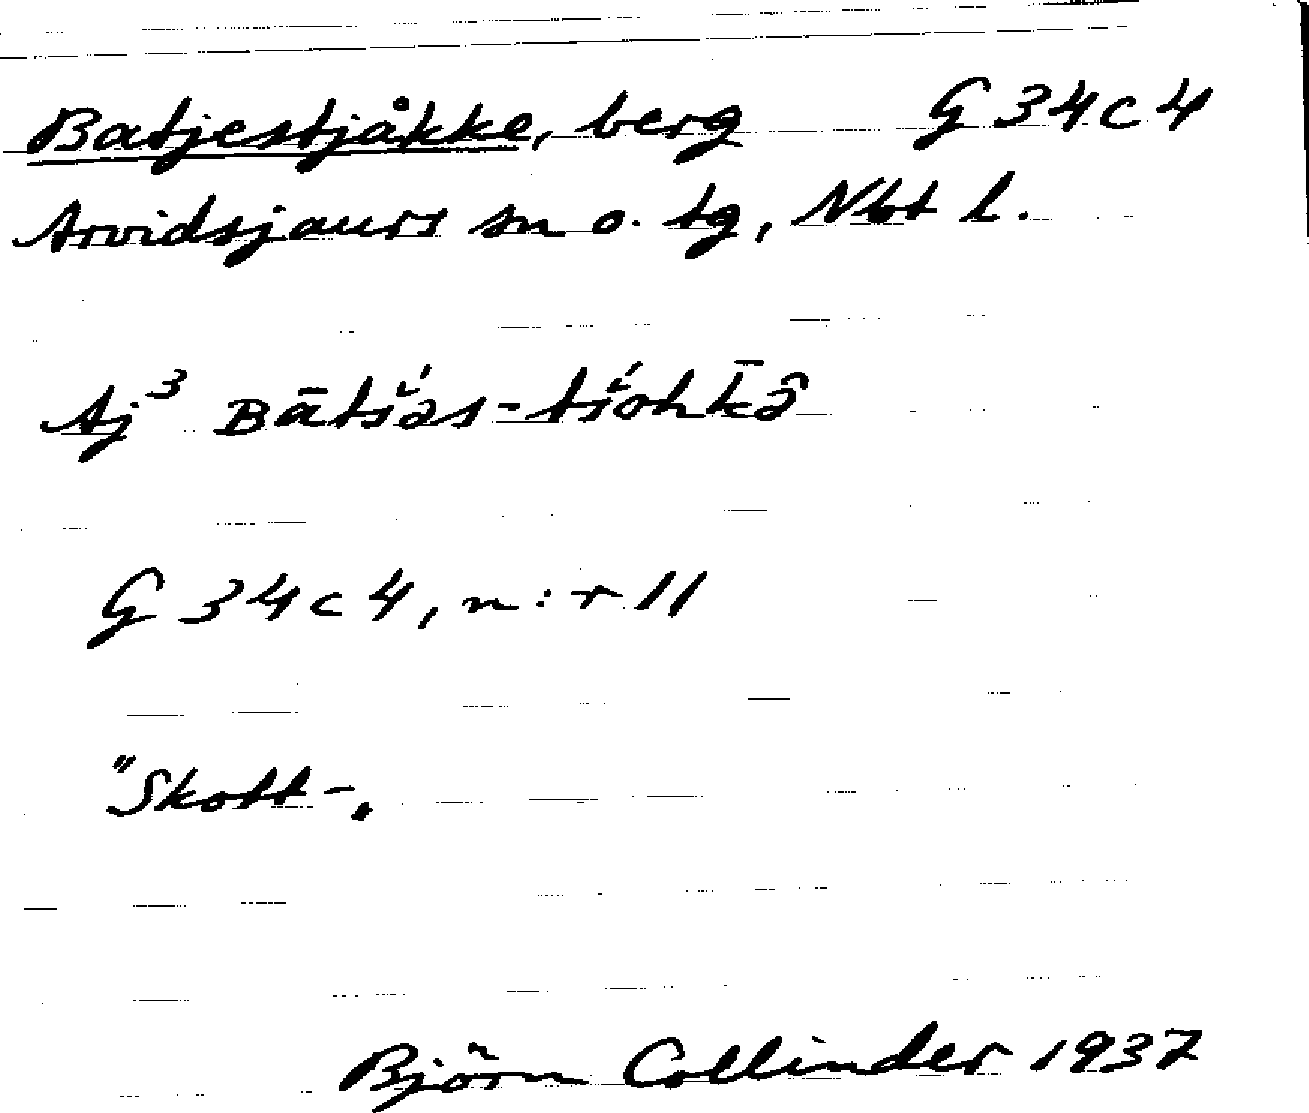 Batjestjåkke, berg G34c4
Arvidsjaurs sn o. tg, Nbt l.
Aj³ Bātśəs-tśohk̄ə̑
G34c4, n:r 11
"Skott-"
Björn Collinder 1937